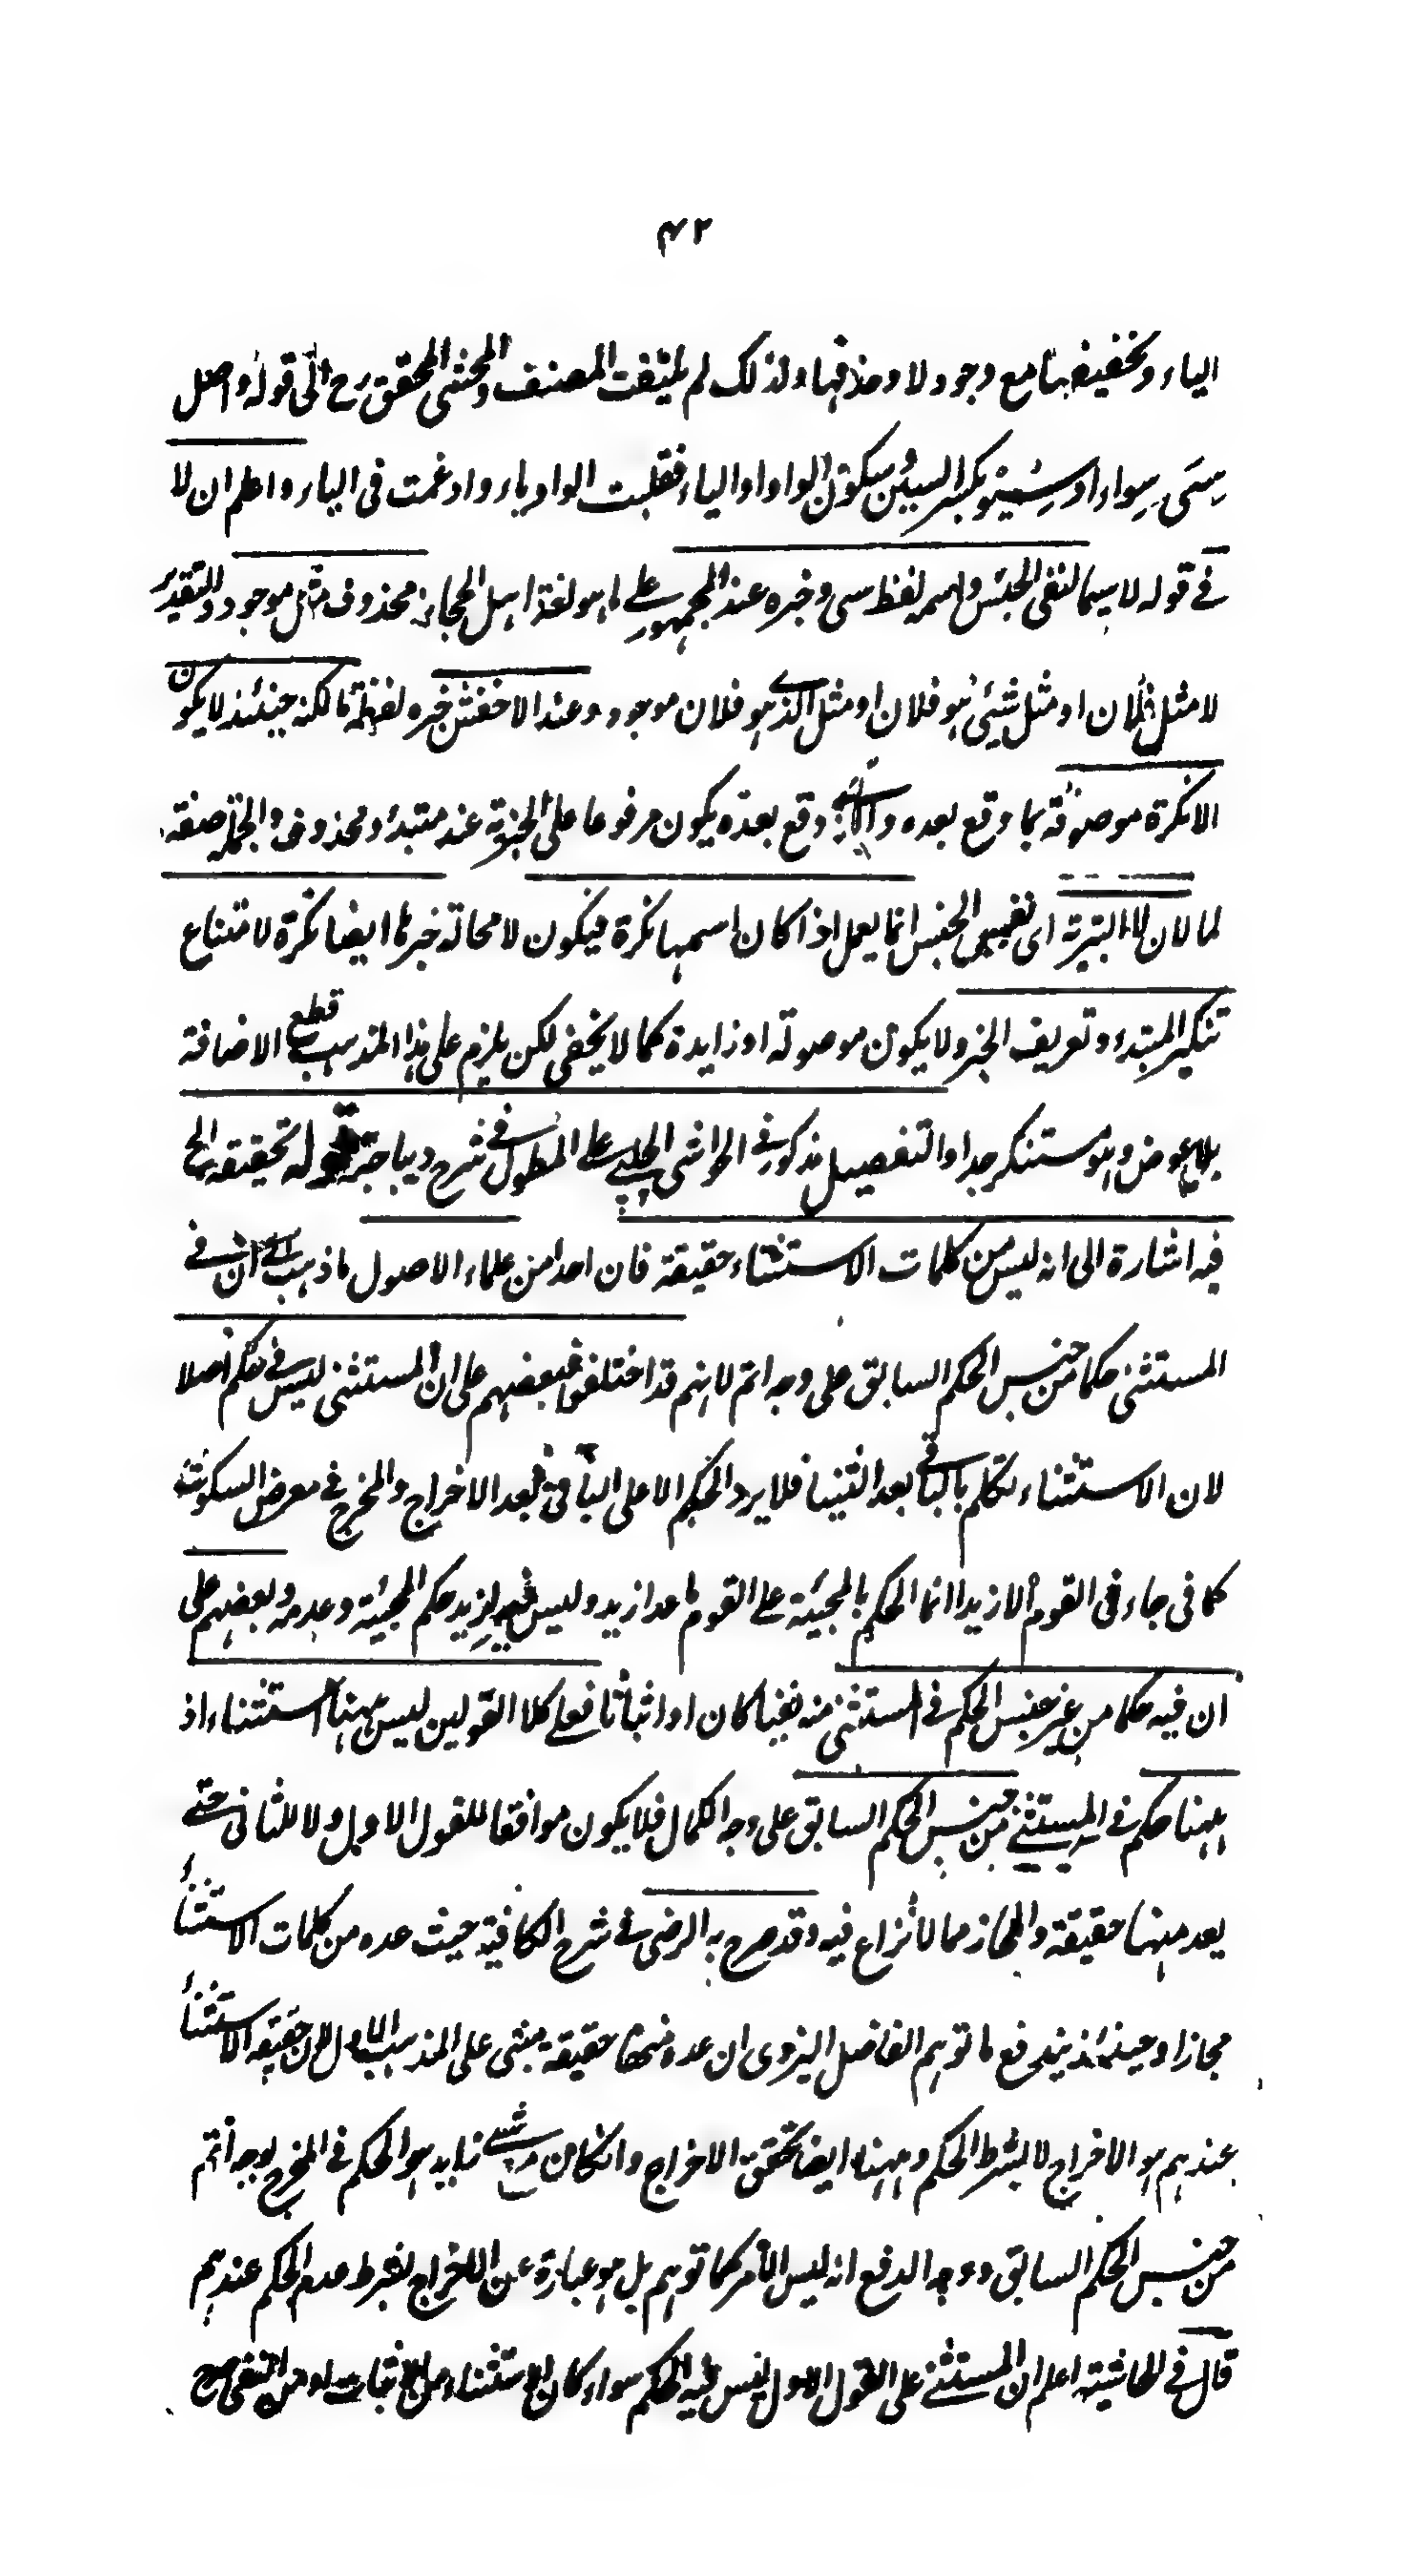 ۴۲
الياء وتخفيفها مع وجود لا وحذفها ولذلك لم يلتفت المصنف والمحشى المحقق رح الى قوله واصل
سى سواء او سيو بكسر السين وسكون الواو او الياء فقلبت الواو ياء وادغمت فى الياء واعلم ان لا
فے قوله لا سيما لنفى الجنس واسمه لفظ سى وخبره عند الجمهور على ما هو لغة اهل الحجاز محذوف مثل موجود والتقدير
لا مثل فلان او مثل شيئ هو فلان او مثل الذے هو فلان موجود وعند الاخفش خبره لفظة ما لكنه حينئذ لا يكون
الا نكرة موصوفة بما وقع بعده وقع بعده يكون مرفوعا على الخبرية عند مبتدء محذوف والجملة صفة
لما لان لا التبرية اى نفى الجنس انما يعمل اذا كان اسمها نكرة فيكون لا محالة خبرها ايضا نكرة لامتناع
تنكير المبتدء وتعريف الخبر ولا يكون موصولة او زايدة كما لا يخفى لكن يلزم على هذا المذهب قطع الاضافة
بلا عوض وهو مستنكر جدا والتفصيل مذكور فے الحواشى الجلپے على المطول فے شرح ديباجته قوله تحقيقه الخ
فيه اشارة الى انه ليس من كلمات الاستثناء حقيقة فان احدا من علماء الاصول ما ذهب الى ان فے
المستثنى حكما من جنس الحكم السابق على وجه اتم لانهم قد اختلفوا فبعضهم على ان المستثنى ليس فے حكم اصلا
لان الاستثناء تكلم بالباقى بعد الثنيا فلا يرد الحكم الا على الباقى بعد الاخراج والمخرج فے معرض السكوت
كما فى جاءنى القوم الا زيدا انما الحكم بالمجيئة على القوم ما عدا زيد وليس فيه لزيد حكم المجيئة وعدمه وبعضهم على
ان فيه حكما من غير جنس الحكم فے المستثنى منه نفيا كان او اثباتا فعلى كلا القولين ليس ههنا استثناء اذ
ههنا حكم فے المستثنے من جنس الحكم السابق على وجه الكمال فلا يكون موافقا للقول الاول ولا للثانى حتے
يعد منها حقيقة والمجاز مما لا نزاع فيه وقد صرح به الرضى فے شرح الكافية حيث عده من كلمات الاستثناء
مجازا وحينئذ يندفع ما توهم الفاضل اليزدى ان عده منها حقيقة مبنى على المذهب الاول لان حقيقة الاستثناء
عندهم هو الاخراج لا بشرط الحكم وههنا ايضا تحقق الاخراج وان كان من شے زايد هو الحكم فے المخرج بوجه اتم
من جنس الحكم السابق ووجه الدفع انه ليس الامر كما توهم بل هو عبارة عن الاخراج بشرط عدم الحكم عندهم
قال فے الحاشية اعلم ان المستثنے على القول الاول ليس فيه الحكم سواء كان الاستثناء من الاثبات او من النفى صرح